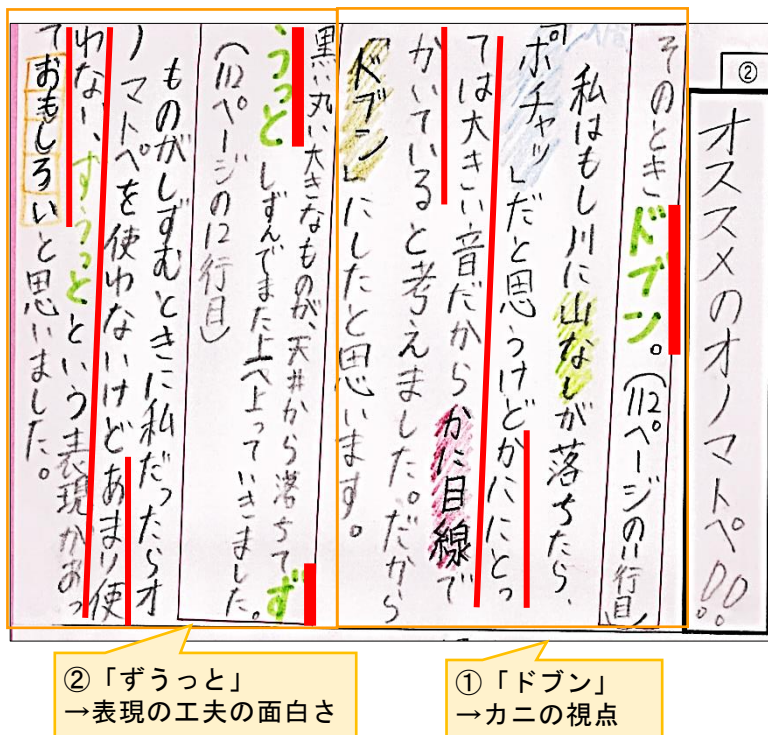 ②
オススメのオノマトペ!!
そのときドブン。(112ページの11行目)
私はもし川に山なしが落ちたら、
「ポチャッ」だと思うけどかににとっ
ては大きい音だからかに目線で
かいていると考えました。だから
「ドブン」にしたと思います。
黒い丸い大きなものが、天井から落ちてず
うっとしずんでまた上へ上っていきました。
(112ページの12行目)
ものがしずむときに私だったらオ
ノマトペを使わないけどあまり使
わない、ずうっとという表現があっ
ておもしろいと思いました。
②「ずうっと」
→表現の工夫の面白さ
①「ドブン」
→カニの視点